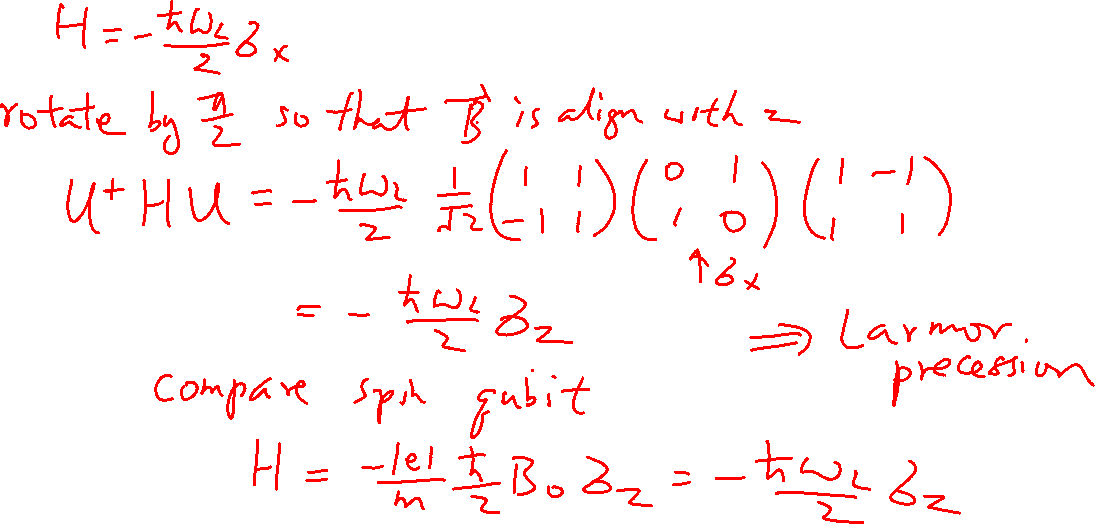 H = -ħω_L/2 σ_x
rotate by π/2 so that B⃗ is align with z
U⁺HU = -ħω_L/2 1/√2 (1 1; -1 1) (0 1; 1 0) (1 -1; 1 1)
↑σ_x
= -ħω_L/2 σ_z ⇒ Larmor.
precession
compare spin qubit
H = -|e|/m ħ/2 B₀ σ_z = -ħω_L/2 σ_z